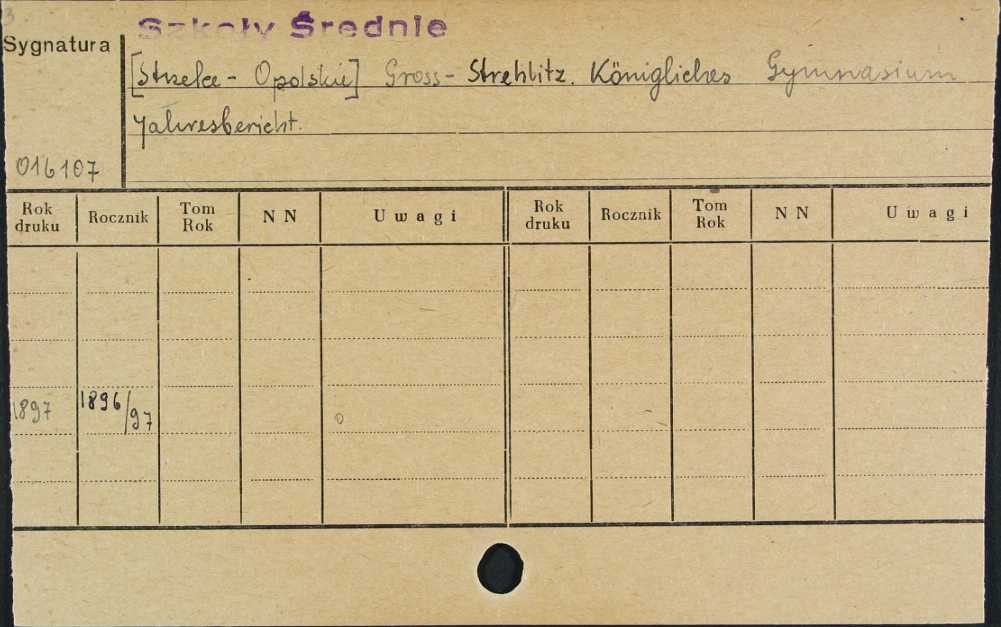 3
Szkoły Średnie
Sygnatura
[Strzelce - Opolskie] Gross - Strehlitz. Königliches Gymnasium
Jahresbericht.
016107
Rok druku Rocznik Tom Rok N N Uwagi Rok druku Rocznik Tom Rok N N Uwagi
1897 1896/97 o